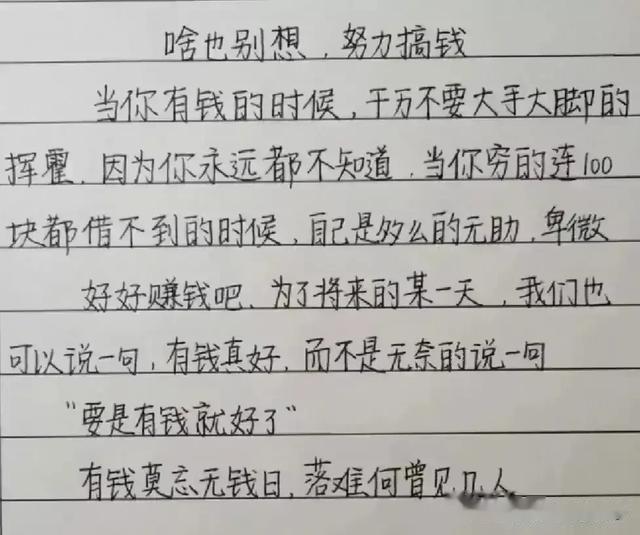 啥也别想，努力搞钱
当你有钱的时候，千万不要大手大脚的
挥霍，因为你永远都不知道，当你穷的连100
块都借不到的时候，自己是多么的无助，卑微
好好赚钱吧，为了将来的某一天，我们也
可以说一句，有钱真好，而不是无奈的说一句
"要是有钱就好了"
有钱莫忘无钱日，落难何曾见几人